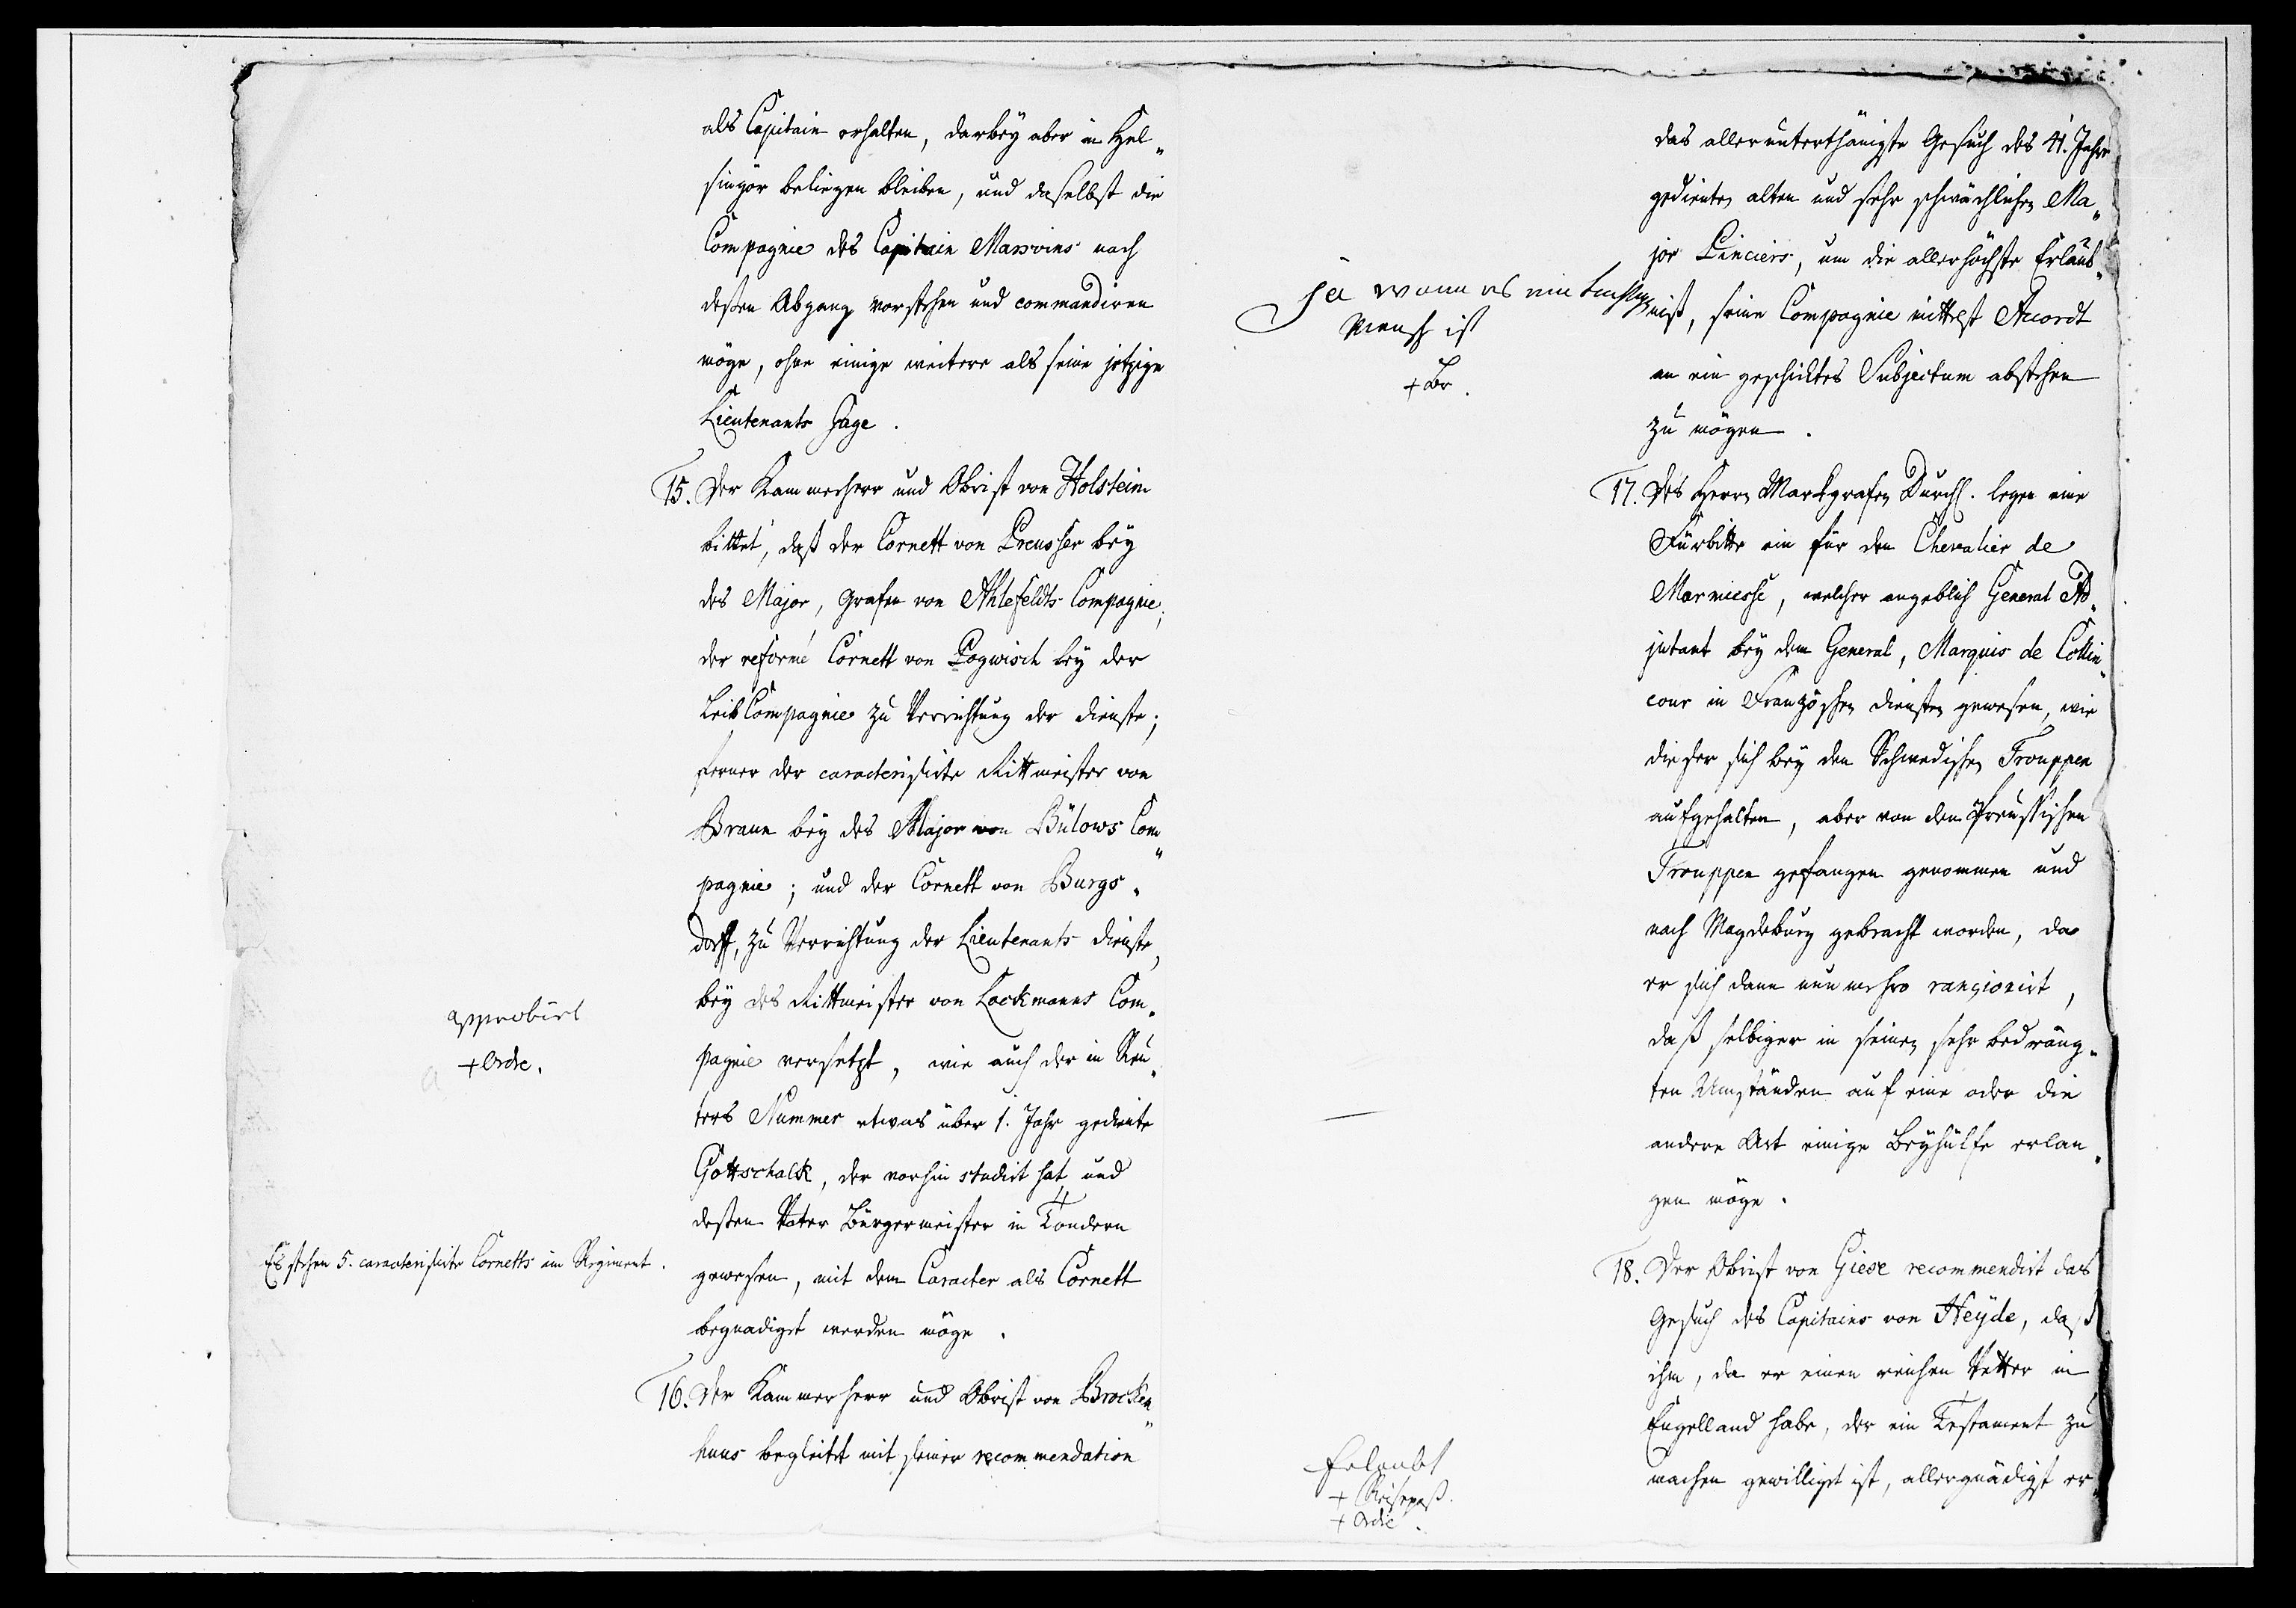 als Capitain erhalten, darbey aber in Hel„
singör beliegen bleiben, und daselbst die
Compagnie des Capitain Massvins nach
deßen Abgang vorstehen und commandiren
möge, ohne einige weitere als seine jetzige
Lieutenants Gage.
15. Der Kammerherr und Obrist von Holstein
bittet, daß der Cornett von Preusser bey
des Major, Grafen von Ahlefeldts Compagnie;
der reformé Cornett von Pogwisch bey der
Leib Compagnie zu Verrichtung der dienste;
ferner der caracterisirte Rittmeister von
Braun bey des Major von Bülows Com„
pagnie; und der Cornett von Burgs„
dorff, zu Verrichtung der Lieutenants dienste,
bey des Rittmeister von Lockmanns Com„
pagnie versetzt, wie auch der in Reu„
ters Nummer etwas über 1. Jahr gediente
Gottschalk, der vorhin studirt hat und
deßen Vater Bürgermeister in Tondern
gewesen, mit dem Caracter als Cornett
begnadiget werden möge.
approbirt
+ Ordre.
Es stehen 5. caracterisirte Cornetts im Regiment.
16. Der Kammerherr und Obrist von Brocken„
huus begleitet mit seiner recommendation
das allerunterthänigste Gesuch des 41. Jahr
gedienten alten und sehr schwächlichen Ma„
jor Linciers, um die allerhöchste Erlaub„
niß, seine Compagnie mittelst Accordt
an ein geschicktes Subjectum abstehen
zu mögen.
ja wenn es ein
Mensch ist
+ Br.
17. Des Herrn Markgrafen Durchl. legen eine
Fürbitte ein für den Chevalier de
Marmiesse, welcher angeblich General Ad„
jutant bey dem General, Marquis de Collin„
cour in Französchen diensten gewesen, wie
dieser sich bey den Schwedischen Trouppen
aufgehalten, aber von den Preussischen
Trouppen gefangen genommen und
nach Magdeburg gebracht worden, da
er sich dann nunmehro rançionirt,
daß selbiger in seinen sehr bedräng„
ten Umständen auf eine oder die
andere Art einige Beyhülfe erlan„
gen möge.
18. Der Obrist von Giese recommendirt das
Gesuch des Capitains von Heyde, daß
ihm, da er einen reichen Vetter in
Engelland habe, der ein Testament zu
machen gewilliget ist, allergnädigst er„
Erlaubt
+ Reisepaß.
+ Ordre.